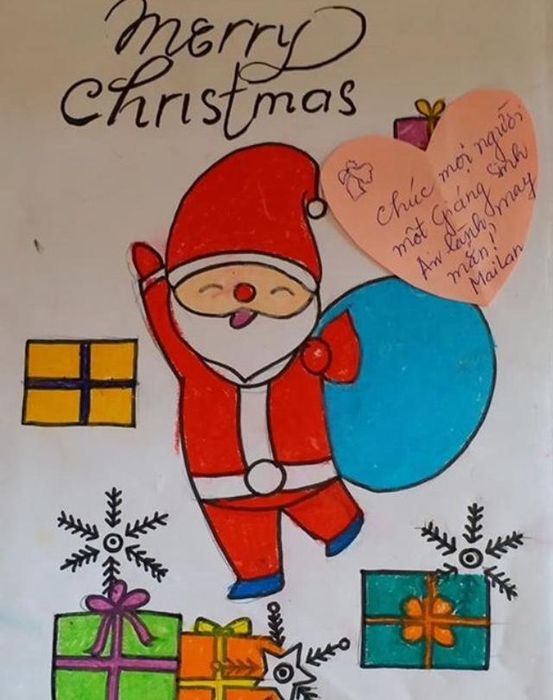 Merry
Christmas
Chúc mọi người
một Giáng Sinh
An lành, may
mắn!
MaiLan